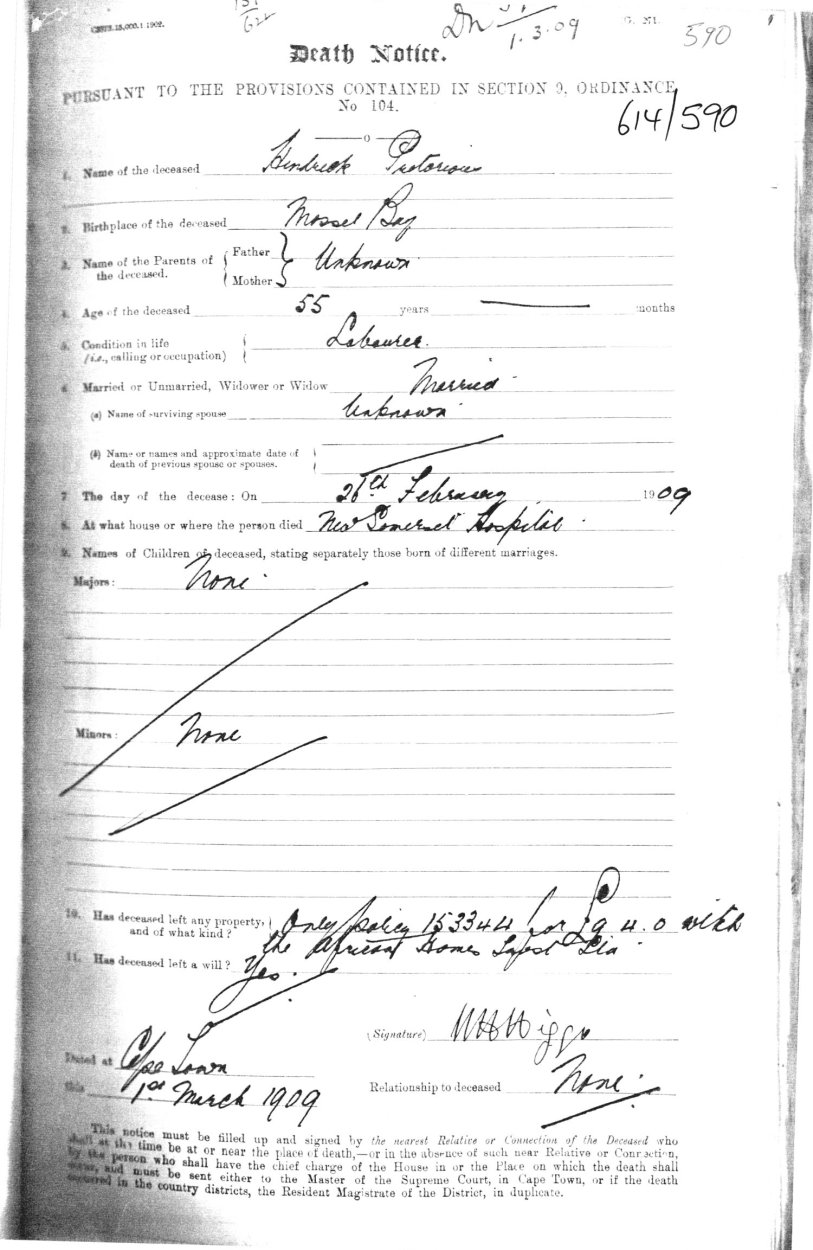 CSVTT.15,000.1 1902.
131/622
Dn
1.3.09
G. 271.
590
Death Notice.
PURSUANT TO THE PROVISIONS CONTAINED IN SECTION 9, ORDINANCE
No 104.
614/590
1. Name of the deceased Hendrick Pretorious
2. Birthplace of the deceased Mossel Bay
3. Name of the Parents of the deceased. { Father Mother } Unknown
4. Age of the deceased 55 years — months
5. Condition in life Labourer.
(i.e., calling or occupation)
6. Married or Unmarried, Widower or Widow Married
(a) Name of surviving spouse Unknown
(b) Name or names and approximate date of
death of previous spouse or spouses.
7. The day of the decease: On 26th February 1909
8. At what house or where the person died New Somerset Hospital
9. Names of Children of deceased, stating separately those born of different marriages.
Majors: None
Minors: None
10. Has deceased left any property, Only policy 153344 for £9 4.0 with
and of what kind? the African Homes
11. Has deceased left a will? Yes.
(Signature)
Dated at Cape Town
this 1st March 1909
Relationship to deceased None
This notice must be filled up and signed by the nearest Relative or Connection of the Deceased who
shall at the time be at or near the place of death,—or in the absence of such near Relative or Connection,
by the person who shall have the chief charge of the House in or the Place on which the death shall
occur, and must be sent either to the Master of the Supreme Court, in Cape Town, or if the death
occurred in the country districts, the Resident Magistrate of the District, in duplicate.